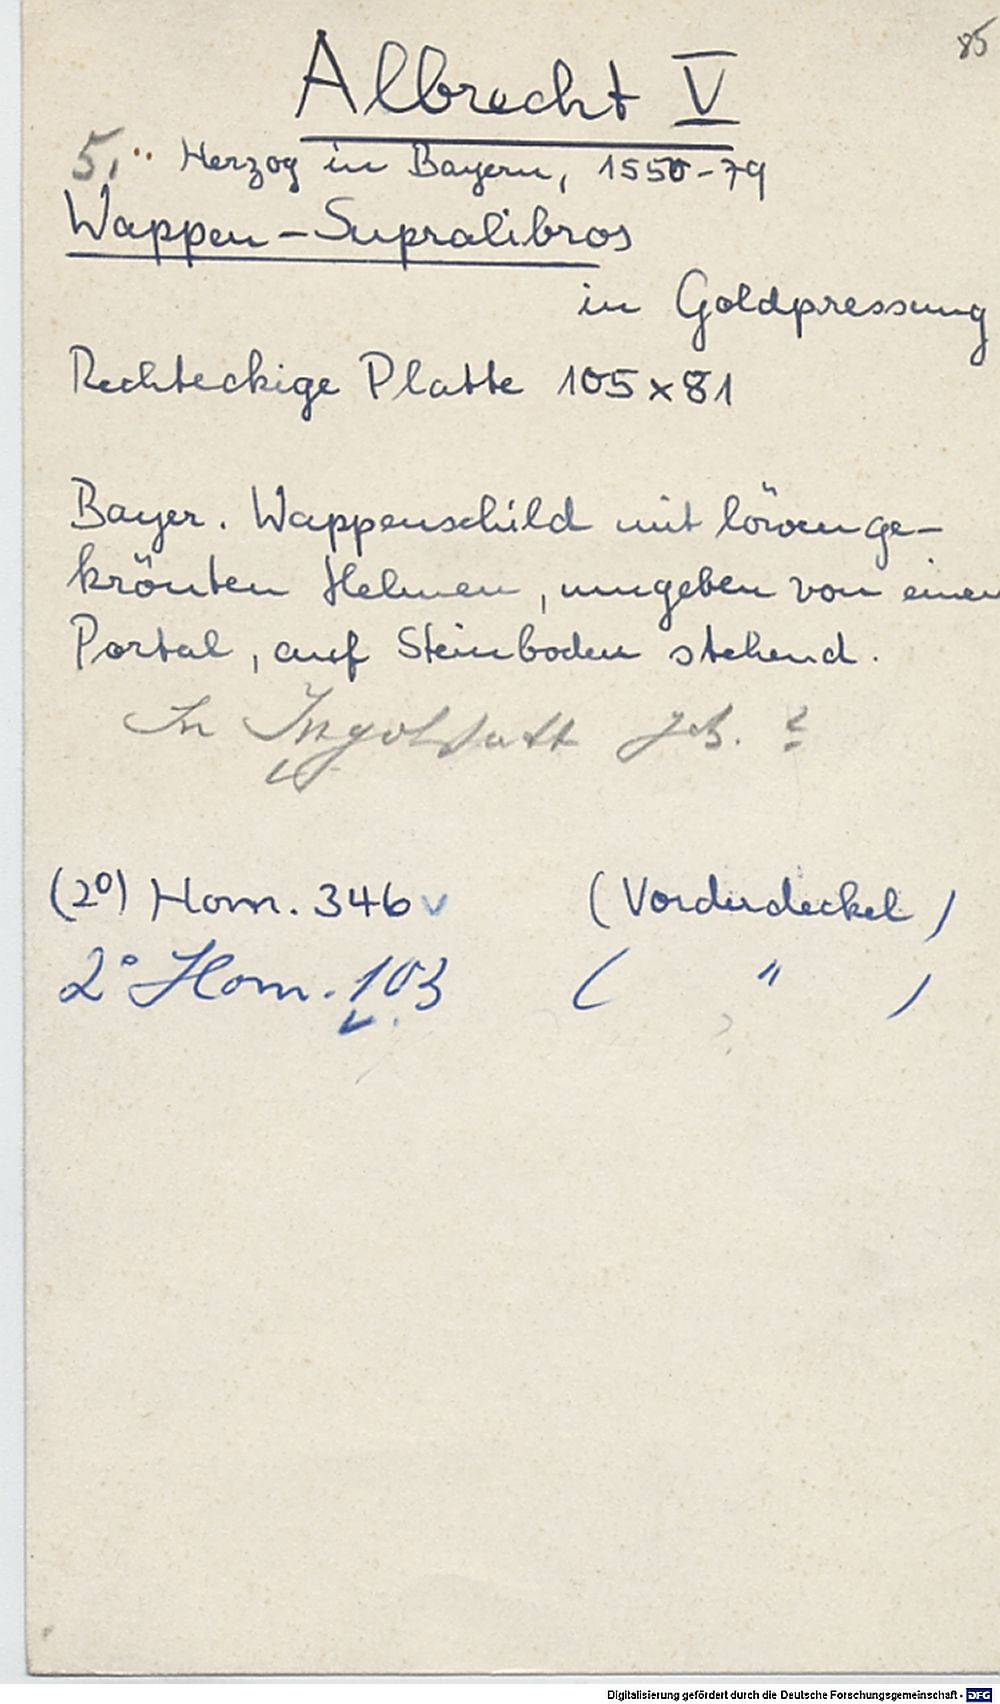 85
Albrecht V
5. Herzog in Bayern, 1550-79
Wappen-Supralibros
in Goldpressung
Rechteckige Platte 105x81
Bayer. Wappenschild mit löwenge-
krönten Helmen, umgeben von einem
Portal, auf Steinboden stehend.
In Ingolstatt geb. ?
(2°) Hom. 346 v (Vorderdeckel)
2° Hom. 103 ( " )
Digitalisierung gefördert durch die Deutsche Forschungsgemeinschaft - DFG